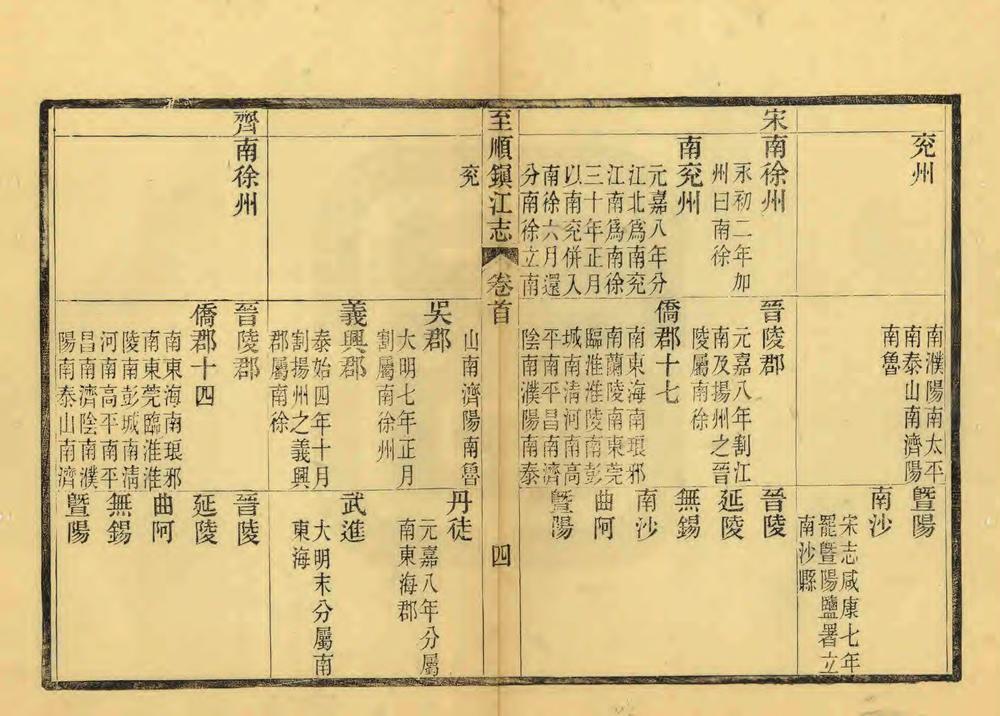 兖州
南濮陽南太平
南泰山南濟陽
南魯
暨陽
南沙
宋志咸康七年
罷暨陽鹽署立
南沙縣
宋南徐州
永初二年加
州曰南徐
南兖州
元嘉八年分
江北爲南兖
江南爲南徐
三十年正月
以南兖併入
南徐六月還
分南徐立南
晉陵郡
元嘉八年割江
南及揚州之晉
陵屬南徐
僑郡十七
南東海南琅邪
南蘭陵南東莞
臨淮淮陵南彭
城南清河南高
平南平昌南濟
陰南濮陽南泰
晉陵
延陵
無錫
南沙
曲阿
暨陽
至順鎭江志
卷首
四
兖
山南濟陽南魯
吳郡
大明七年正月
割屬南徐州
義興郡
泰始四年十月
割揚州之義興
郡屬南徐
丹徒
元嘉八年分屬
南東海郡
武進
大明末分屬南
東海
齊南徐州
晉陵郡
僑郡十四
南東海南琅邪
南東莞臨淮淮
陵南彭城南清
河南高平南平
昌南濟陰南濮
陽南泰山南濟
晉陵
延陵
曲阿
無錫
暨陽